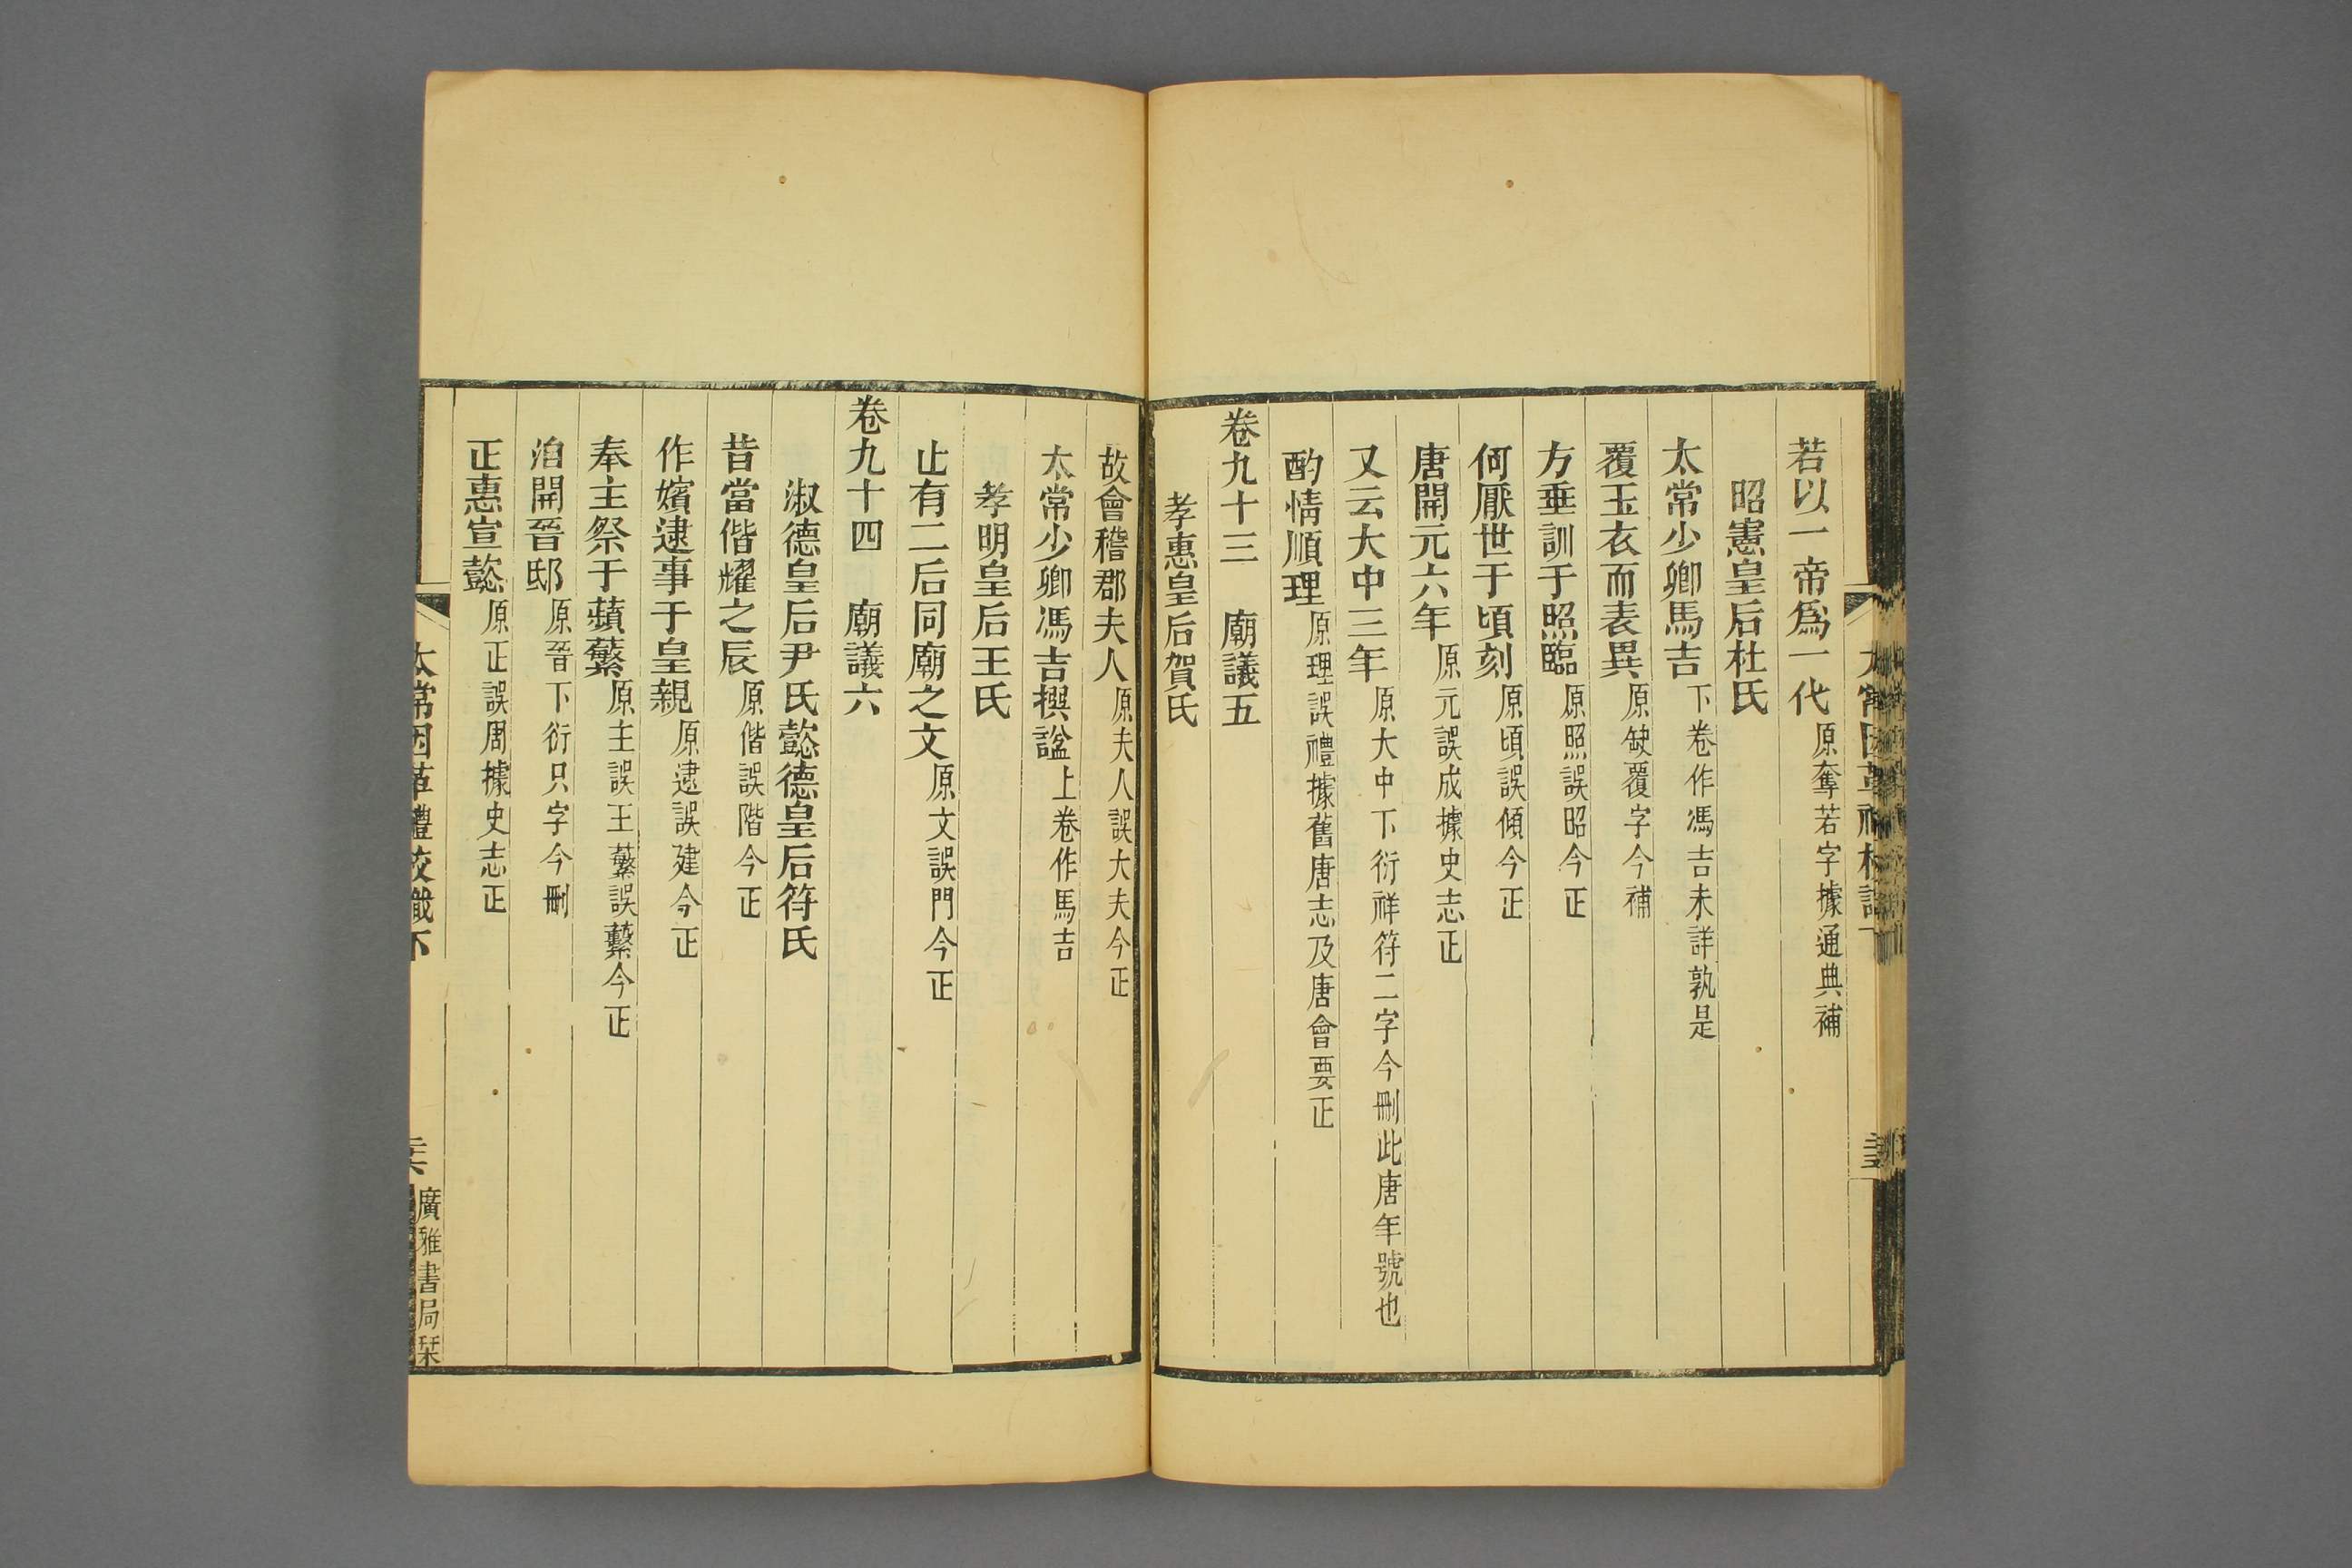 若以一帝爲一代原奪若字據通典補
昭憲皇后杜氏
太常少卿馬吉下卷作馮吉未詳孰是
覆玉衣而表異原缺覆字今補
方垂訓于照臨原照誤昭今正
何厭世于頃刻原頃誤傾今正
唐開元六年原元誤成據史志正
又云大中三年原大中下衍祥符二字今刪此唐年號也
酌情順理原理誤禮據舊唐志及唐會要正
卷九十三 廟議五
孝惠皇后賀氏
故會稽郡夫人原夫人誤大夫今正
太常少卿馮吉撰謚上卷作馬吉
孝明皇后王氏
止有二后同廟之文原文誤門今正
卷九十四 廟議六
淑德皇后尹氏懿德皇后符氏
昔當偕耀之辰原偕誤階今正
作嬪逮事于皇親原逮誤建今正
奉主祭于蘋蘩原主誤王蘩誤蘩今正
洎開晉邸原晉下衍只字今刪
正惠宣懿原正誤周據史志正
太常因革禮校識下
廣雅書局栞